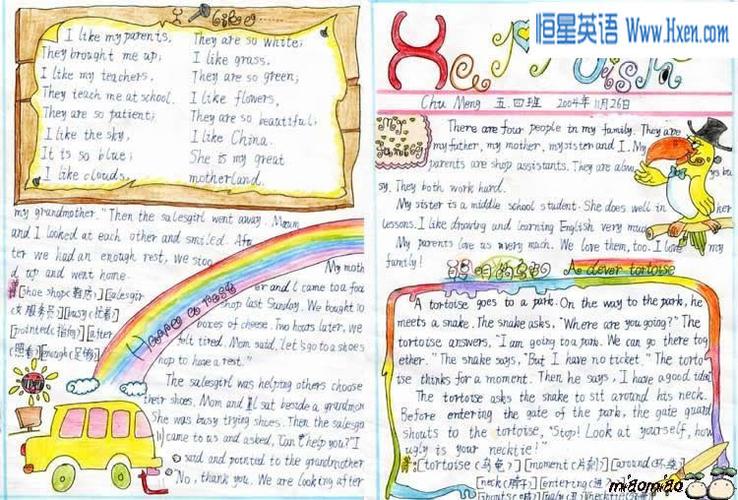 I like my parents,
They brought me up;
I like my teachers,
They teach me at school.
They are so patient;
I like the sky,
It is so blue;
I like clouds,
They are so white;
I like grass,
They are so green;
I like flowers,
They are so beautiful;
I like China.
She is my great
motherland.
my grandmother." Then the salesgirl went away. Mum
and I looked at each other and smiled. Af
ter we had an enough rest, we stoo
d up and went home.
[shoe shop(鞋房)][salesgir
(女服务员)][busy(忙着)]
[pointed(指向)][after
(照看)][enough(足够)]
Have a rest
My moth
er and I came to a foo
shop last Sunday. We bought 10
boxes of cheese. Two hours later, we
felt tired. Mom said, "Let's go to a shoes
shop to have a rest."
The salesgirl was helping others choose
their shoes. Mom and I sat beside a grandmom
She was busy trying shoes. Then the salesgi
came to us and asked, "Can I help you?" I
said and pointed to the grandmother
"No, thank you. We are looking after
恒星英语 Www.Hxen.com
Chu Meng 五四班 2004年11月26日
My
family
There are four people in my family. They are
my father, my mother, my sister and I. My
parents are shop assistants. They are alwa ys bu
sy. They both work hard.
My sister is a middle school student. She does well in her
lessons. I like drawing and learning English very much
My parents love us very much. We love them, too. I love my
family!
聪明的乌龟 A clever tortoise
A tortoise goes to a park. On the way to the park, he
meets a snake. The snake asks, "Where are you going?" The
tortoise answers, "I am going to a park. We can go there tog
ether." The snake says, "But I have no ticket." The torto
ise thinks for a moment. Then he says, I have a good idea
The tortoise asks the snake to sit around his neck.
Before entering the gate of the park, the gate guard
shouts to the tortoise, "Stop! Look at yourself, how
ugly is your necktie!"
[tortoise(乌龟)][moment(片刻)][around(环绕)]
[neck(脖子)][entering(进
miaomiao